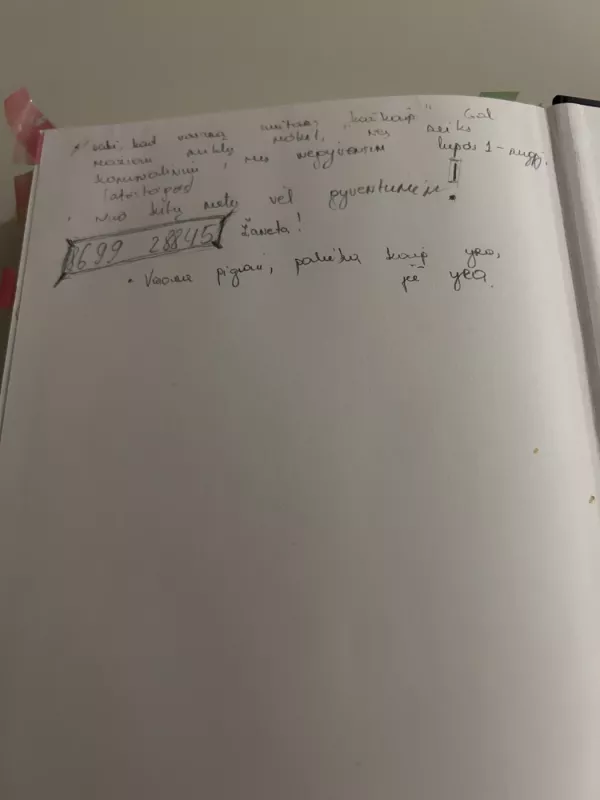 sako, kad vasarą mitars "kažkaip" Gal
mažiau reiktų mokėt, nes reiks
komunalinių, nes negyvensim liepos 1-rugpj.
(atostogos)
, nuo kitų metų vėl gyventumėm!
8699 28845 Žaneta!
• Vasara pigiau, palieka kaip yra,
jei yra.